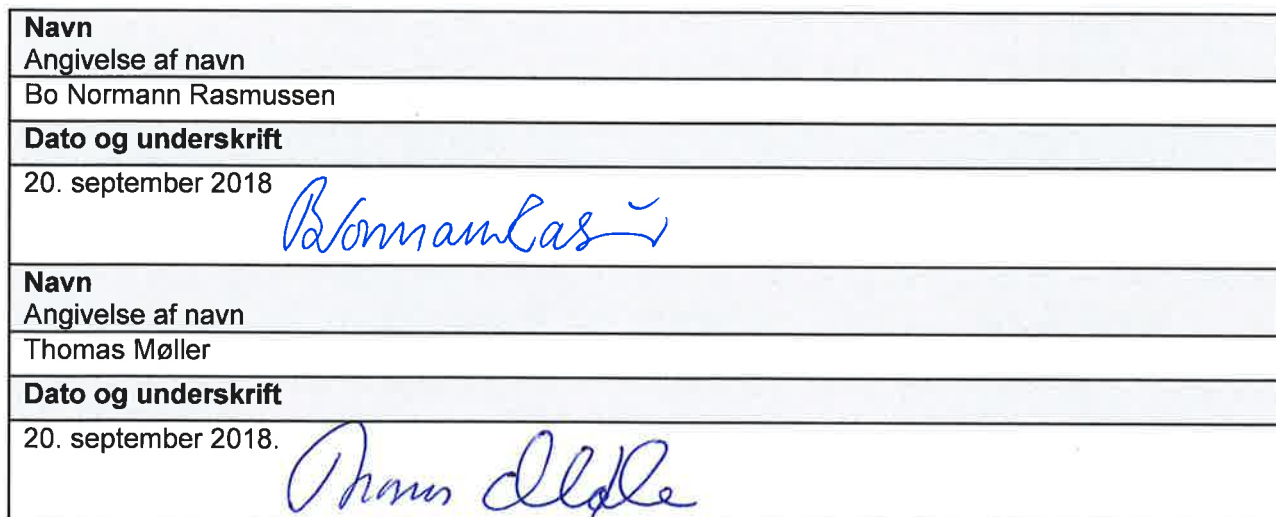 Navn
Angivelse af navn
Bo Normann Rasmussen
Dato og underskrift
20. september 2018
Navn
Angivelse af navn
Thomas Møller
Dato og underskrift
20. september 2018.